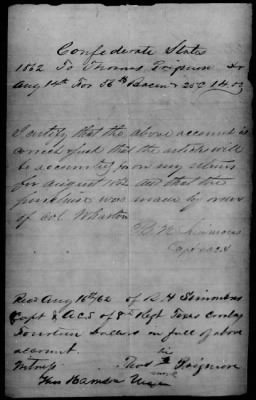 Confederate States
1862 To Thomas Dr
Aug 14th For 56 lb Bacon 25c 14.00
I certify that the above account is
correct & just that the articles will
be accounted for on my return
for August 1862 and that the
purchase was made by order
of Col Wharton
Simmons
Capt & ACS
Recd Aug 16th/62 of R H Simmons
Capt & A.C.S of 8th Regt Texas Cavalry
Fourteen Dollars in full of above
account.
Witness Thos his X
mark